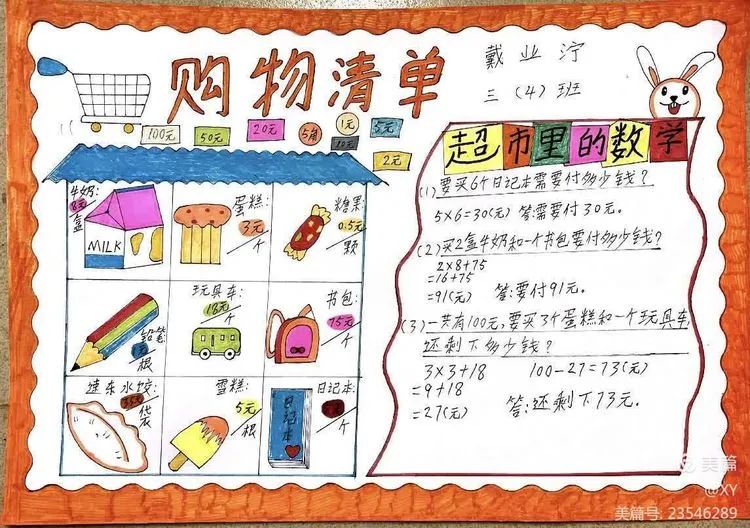 购物清单
戴业泞
三(4)班
100元
50元
20元
5角
1元
10元
5元
2元
牛奶:
8元/盒
MILK
蛋糕:
3元/个
糖果
0.5元/颗
铅笔
根
玩具车:
18元/个
书包:
75元/个
速冻水饺:
35元/袋
雪糕:
5元/根
日记本:
个
日记本
超市里的数学
(1)要买6个日记本需要付多少钱?
5×6=30(元) 答:需要付30元。
(2)买2盒牛奶和一个书包要付多少钱?
2×8+75
=16+75
=91(元) 答:要付91元。
(3)一共有100元,要买3个蛋糕和一个玩具车,
还剩下多少钱?
3×3+18 100-27=73(元)
=9+18
=27(元) 答:还剩下73元.
美篇
@XY
美篇号: 23546289